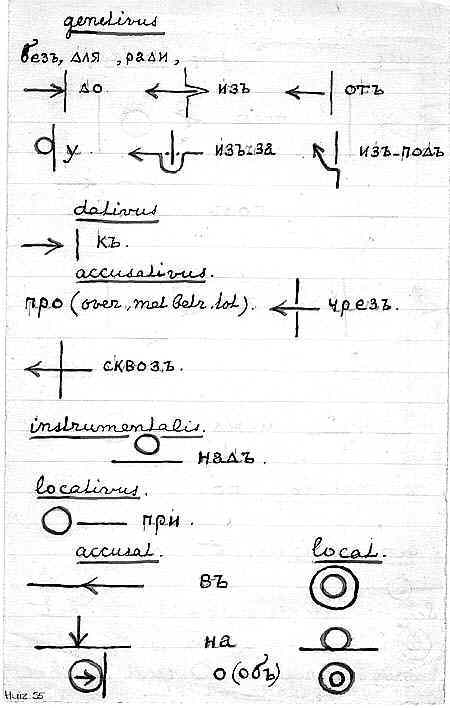 genetivus
безъ, для, ради,
до. изъ отъ
у. изъ-за изъ-подъ
dativus
къ.
accusativus.
про (over, met betr. tot). чрезъ.
сквозь.
instrumentalis.
надъ.
locativus.
при.
accusat. local.
въ
на
о (объ)
Huiz 55